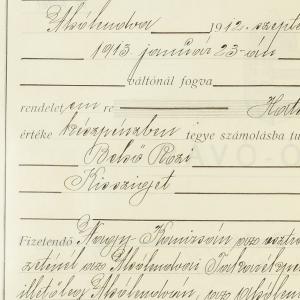 Alsólendva 1912. szept
1913 január 23-án
váltónál fogva
rendelet em re Hat
értéke készpénzben tegye számolásba tu
Belső Rozi
Kissziget
Fizetendő Nagy-Kanizsán, az osztr
zeténél, az Alsólendvai Takarékp
illetőleg Alsólendván, az Alsólen